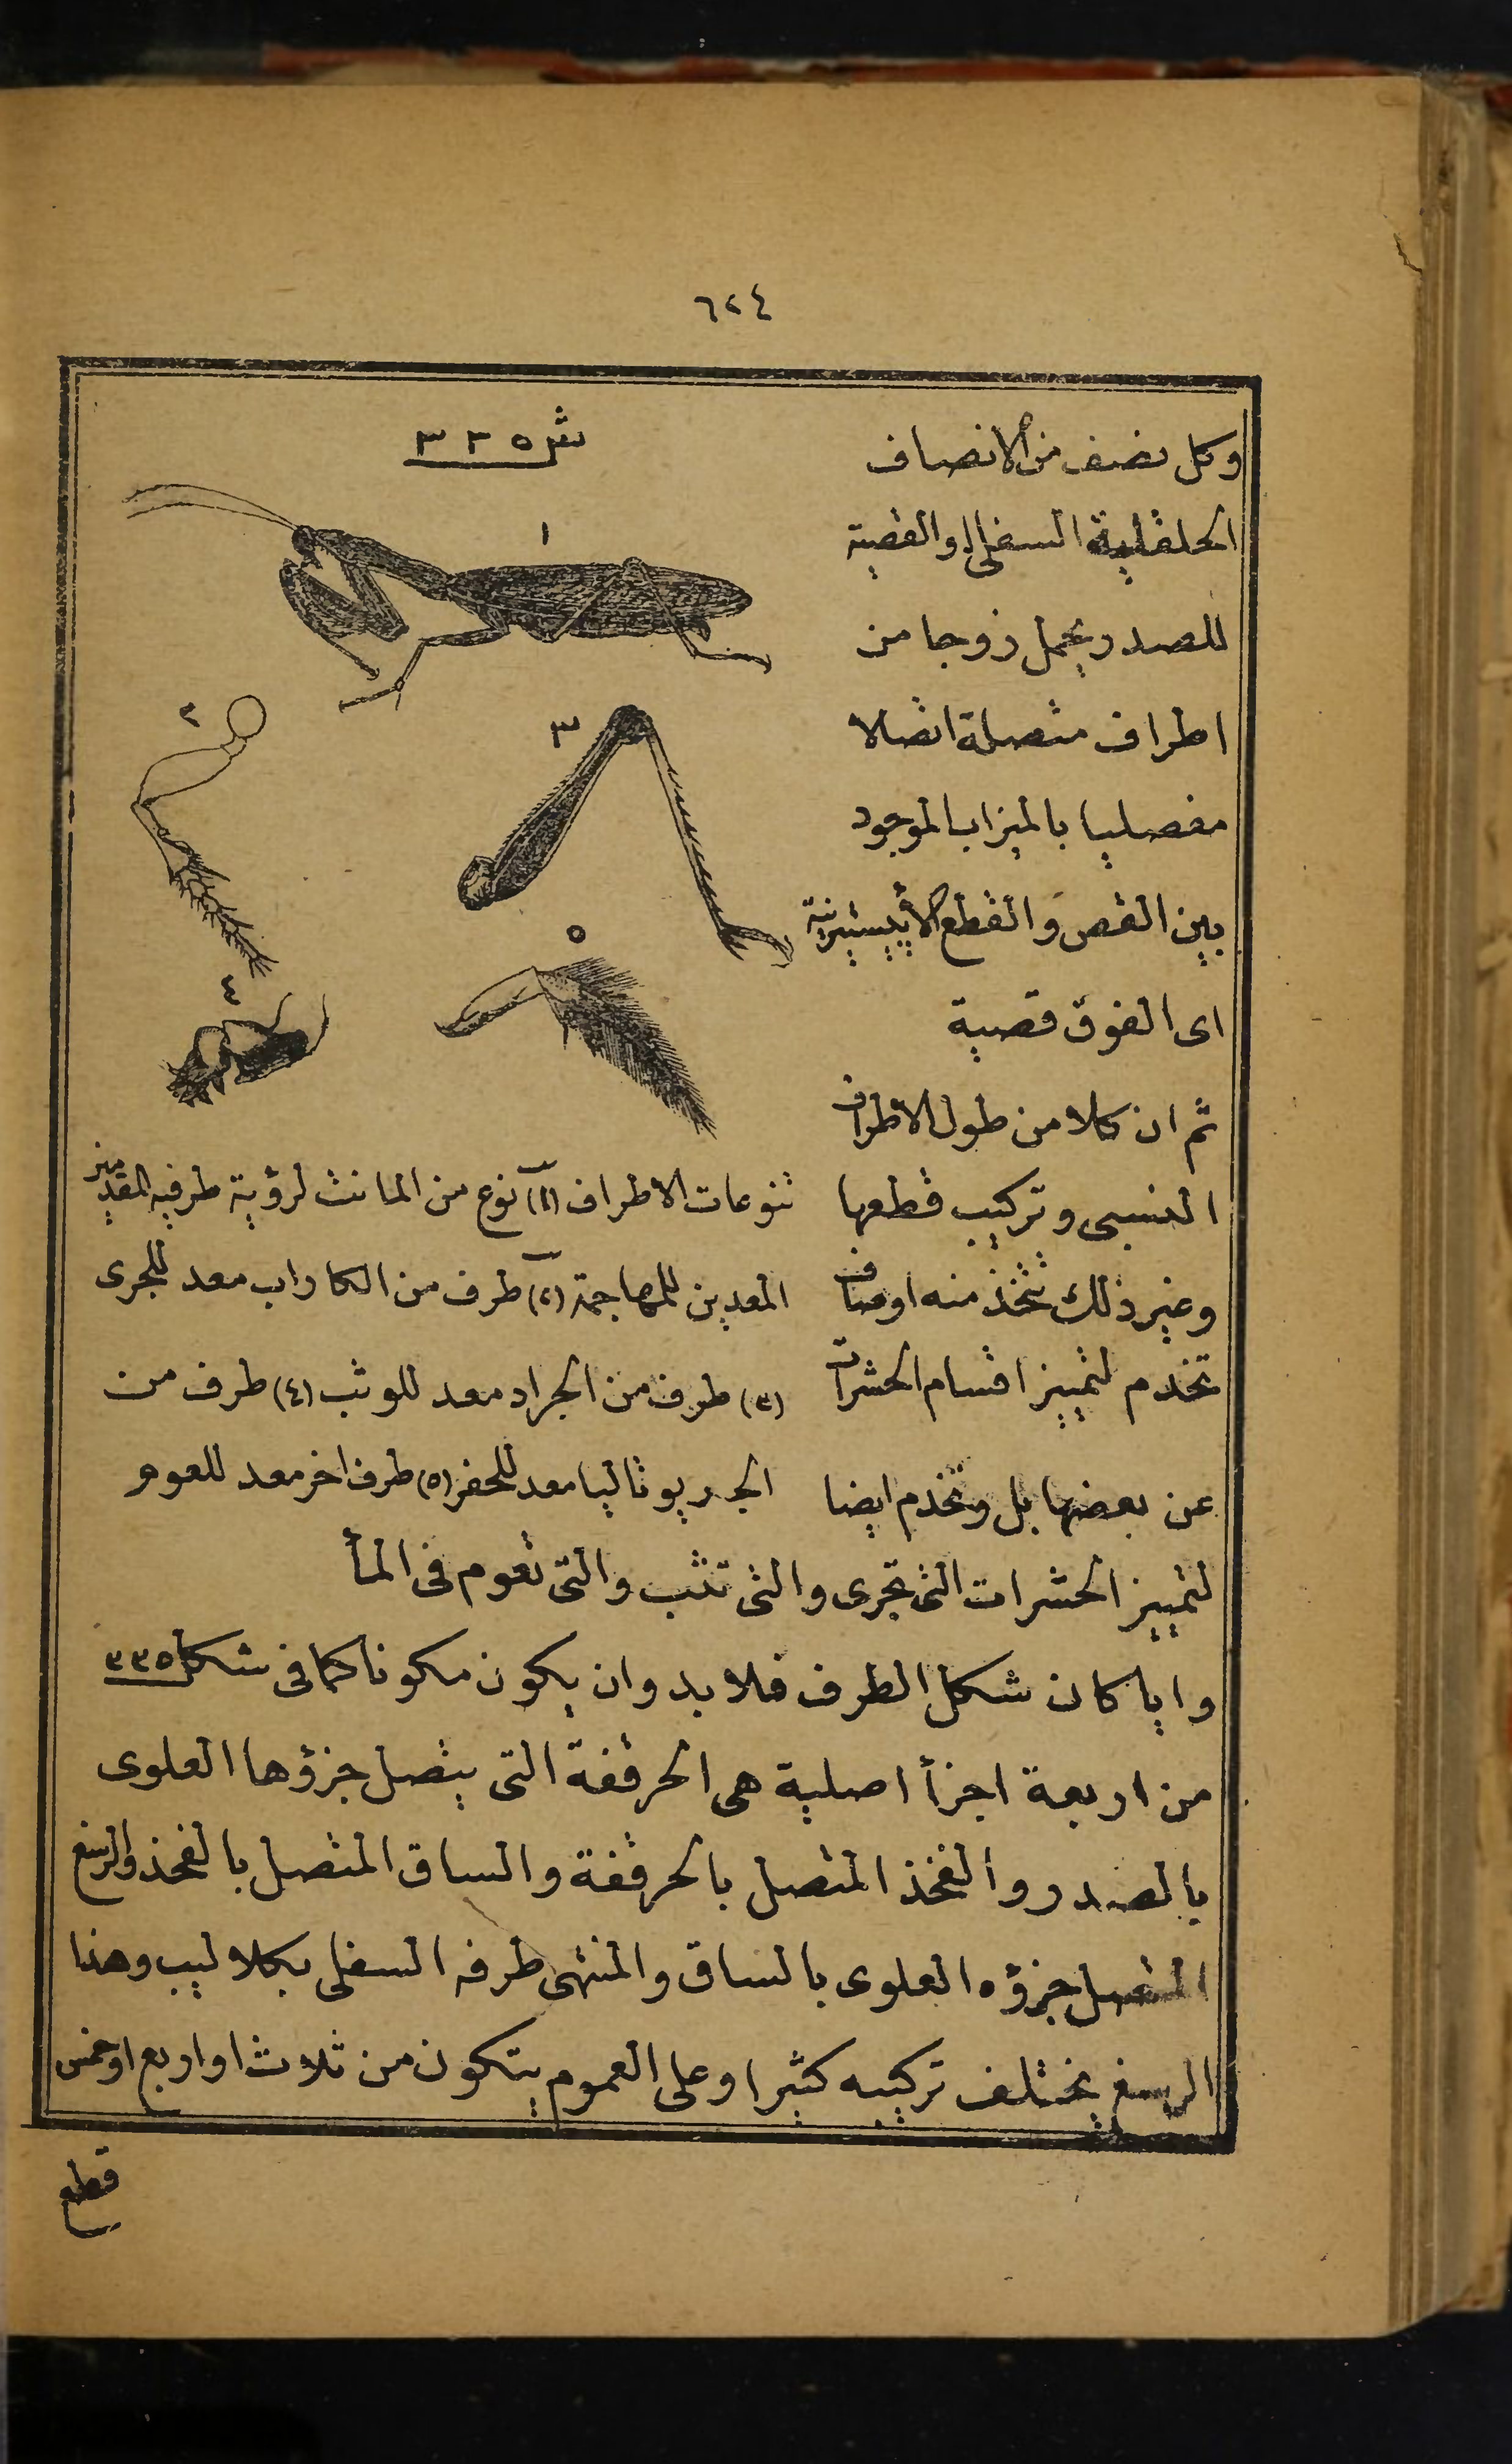 ٦٢٤
وكل نصف من الانصاف
الحلقلية السفلى او القصية
للصدر يحمل زوجا من
اطراف متصلة اتصالا
مفصليا بالميزاب الموجود
بين القص والقطع الأبيسترنية
اى الفوق قصية
ثم ان كلا من طول الاطراف
النسبى وتركيب قطعها
وغير ذلك تتخذ منه اوصاف
تخدم لتمييز اقسام الحشرات
عن بعضها بل وتخدم ايضا
ش ٣٣٥
١
٢
٣
٤
٥
تنوعات الاطراف (١) نوع من المانت لرؤية طرفيه المقدمين
المعدين للمهاجمة (٢) طرف من الكاراب معد للجرى
(٣) طرف من الجراد معد للوثب (٤) طرف من
الجريوتالپا معد للحفر (٥) طرف اخر معد للعوم
لتمييز الحشرات التى تجرى والتى تثب والتى تعوم فى المأ
وايا كان شكل الطرف فلا بد وان يكون مكونا كما فى شكل ٣٣٥
من اربعة اجزأ اصلية هى الحرقفة التى يتصل جزؤها العلوى
بالصدر والفخذ المتصل بالحرقفة والساق المتصل بالفخذ والرسغ
المتصل جزؤه العلوى بالساق والمنتهى طرفه السفلى بكلاليب وهذا
الرسغ يختلف تركيبه كثيرا وعلى العموم يتكون من ثلاث او اربع او خمس
قطع